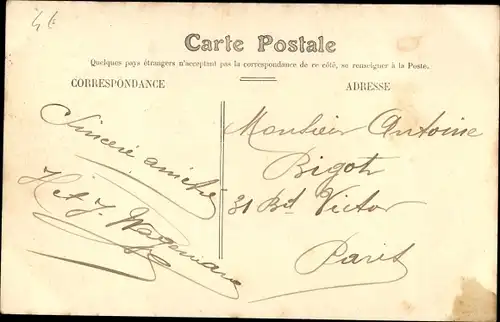 4 €
Carte Postale
Quelques pays étrangers n'acceptant pas la correspondance de ce côté, se renseigner à la Poste.
CORRESPONDANCE
ADRESSE
Sincère amitié
H et J. Wagemans
Monsieur Antoine
Bigot
31 Bd Victor
Paris